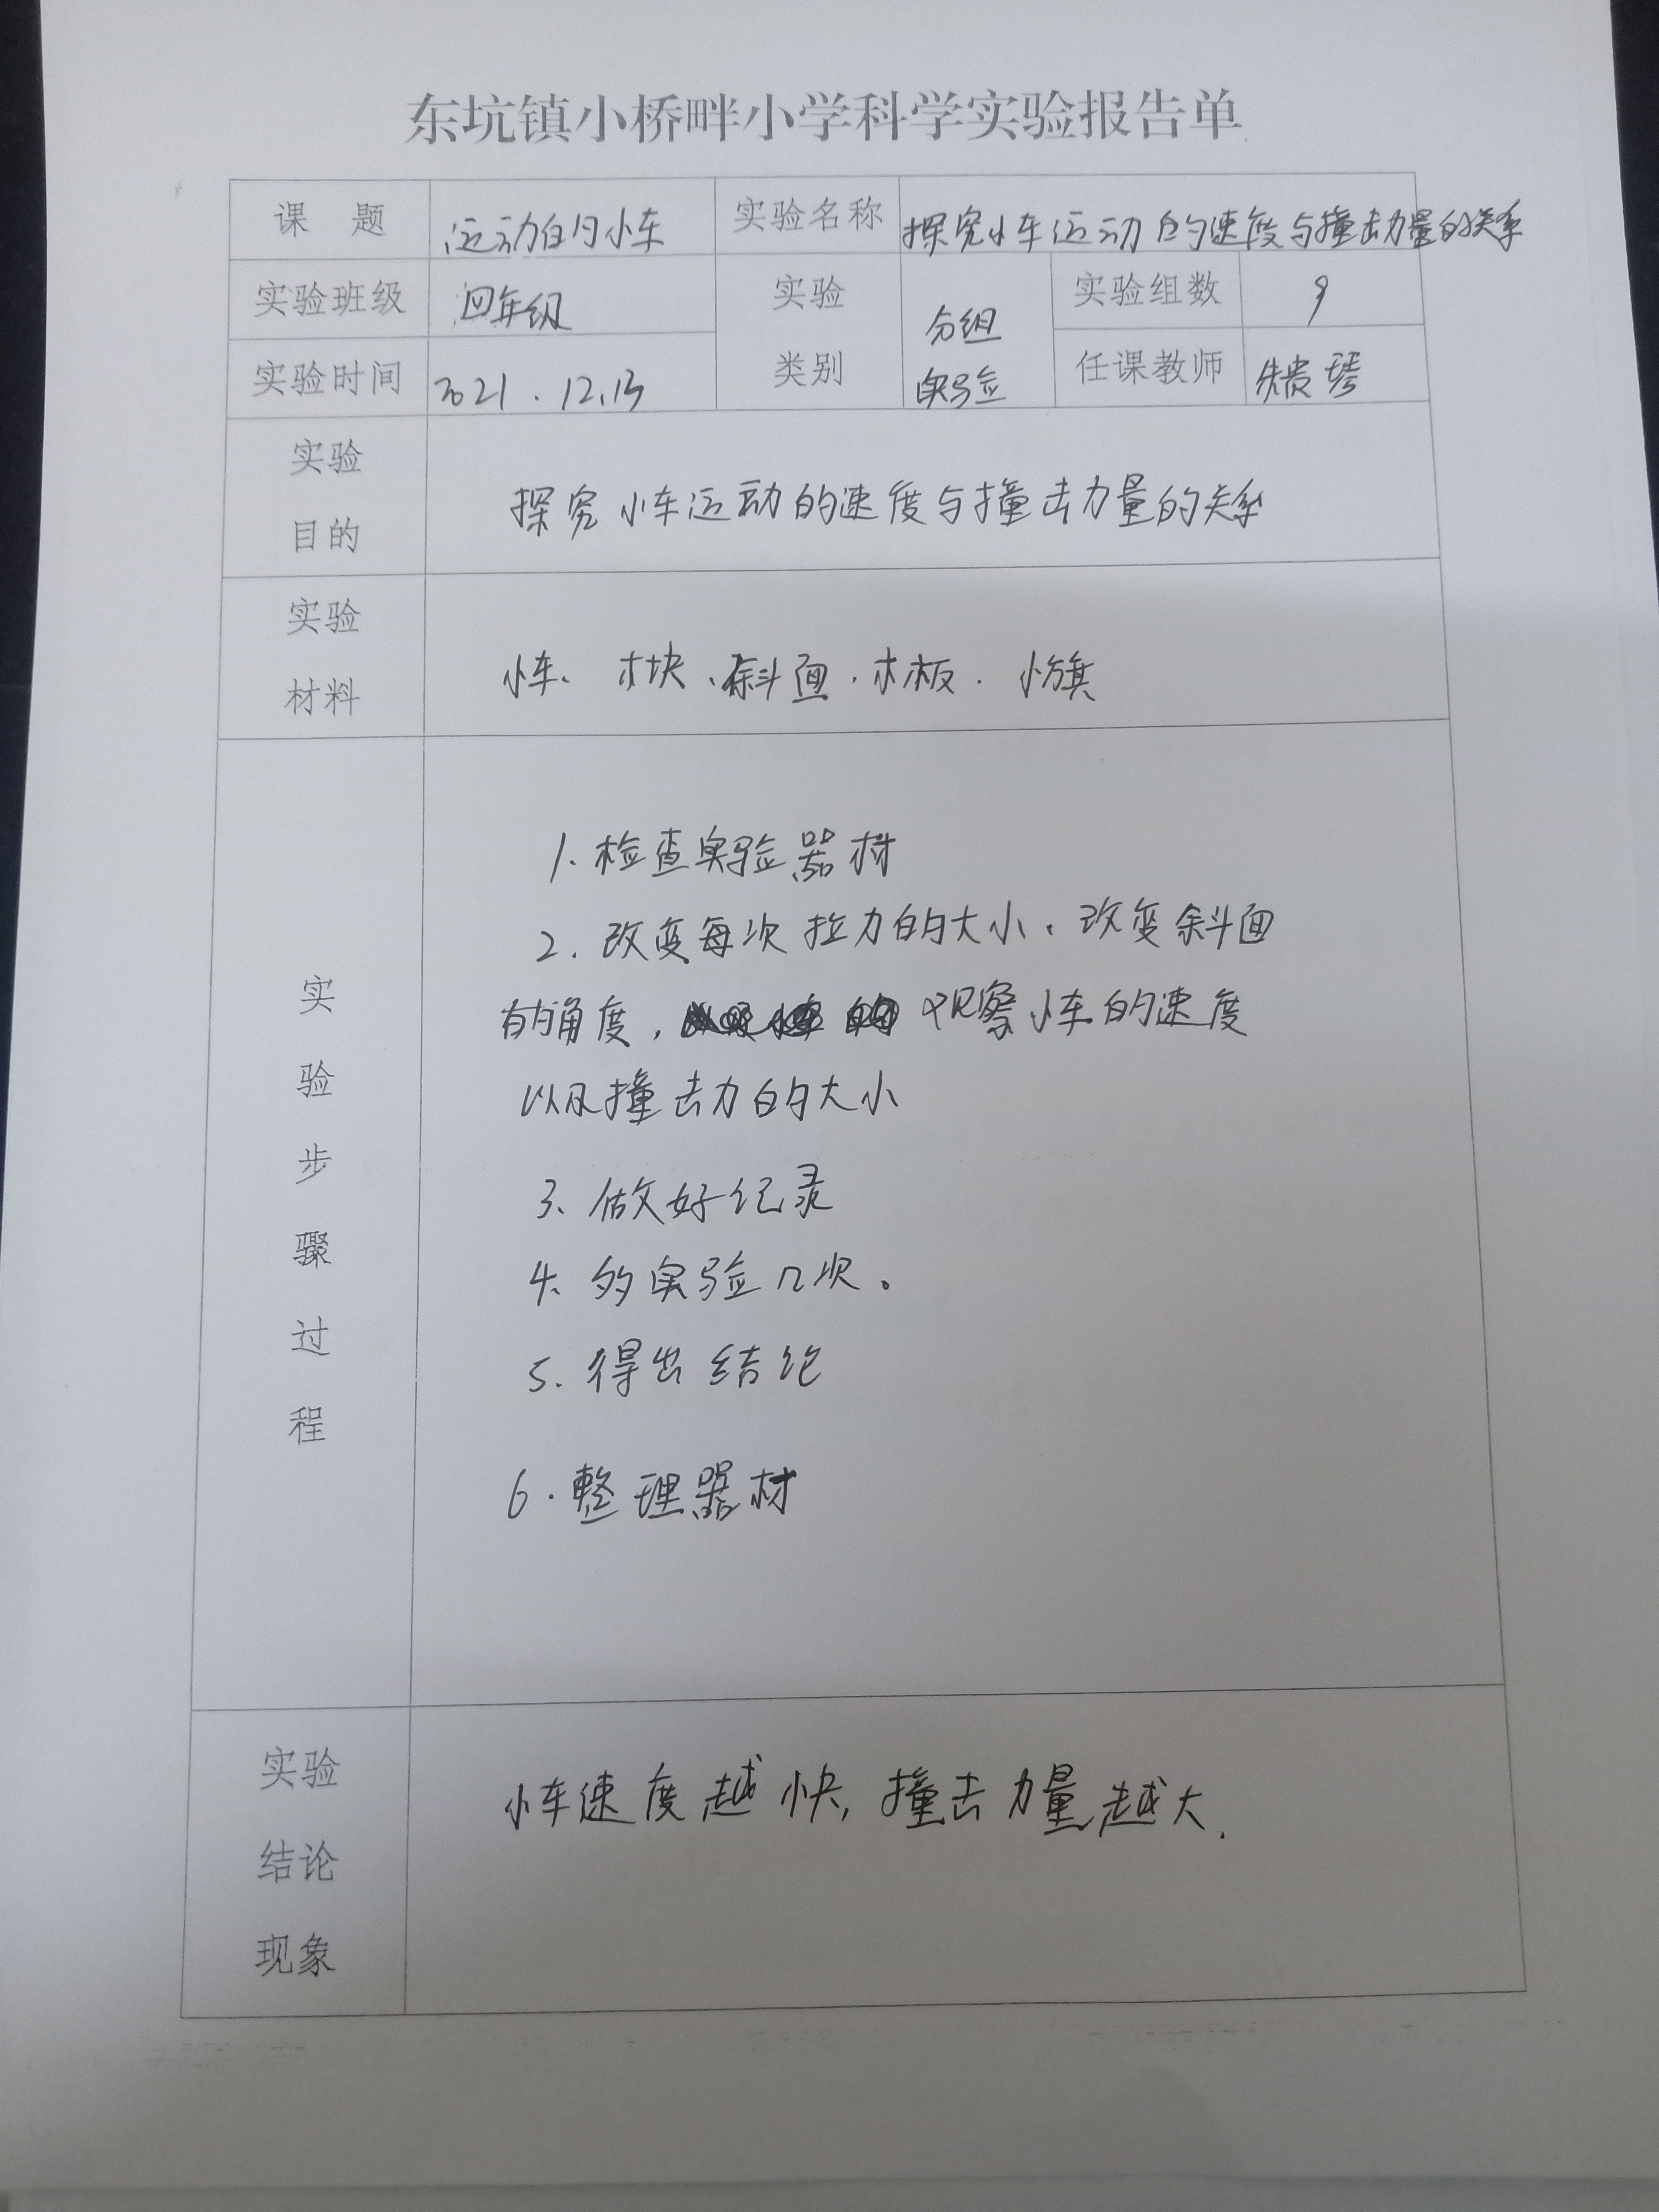 东坑镇小桥畔小学科学实验报告单
课 题 运动的小车 实验名称 探究小车运动的速度与撞击力量的关系
实验班级 四年级 实验类别 分组实验 实验组数 9
实验时间 2021.12.13 任课教师 朱贵琴
实验目的 探究小车运动的速度与撞击力量的关系
实验材料 小车、木块、斜面、木板、小旗
实验步骤过程
1、检查实验器材
2、改变每次拉力的大小、改变斜面
的角度, 观察小车的速度
以及撞击力的大小
3、做好记录
4、多实验几次。
5、得出结论
6.整理器材
实验结论现象 小车速度越快,撞击力量越大.